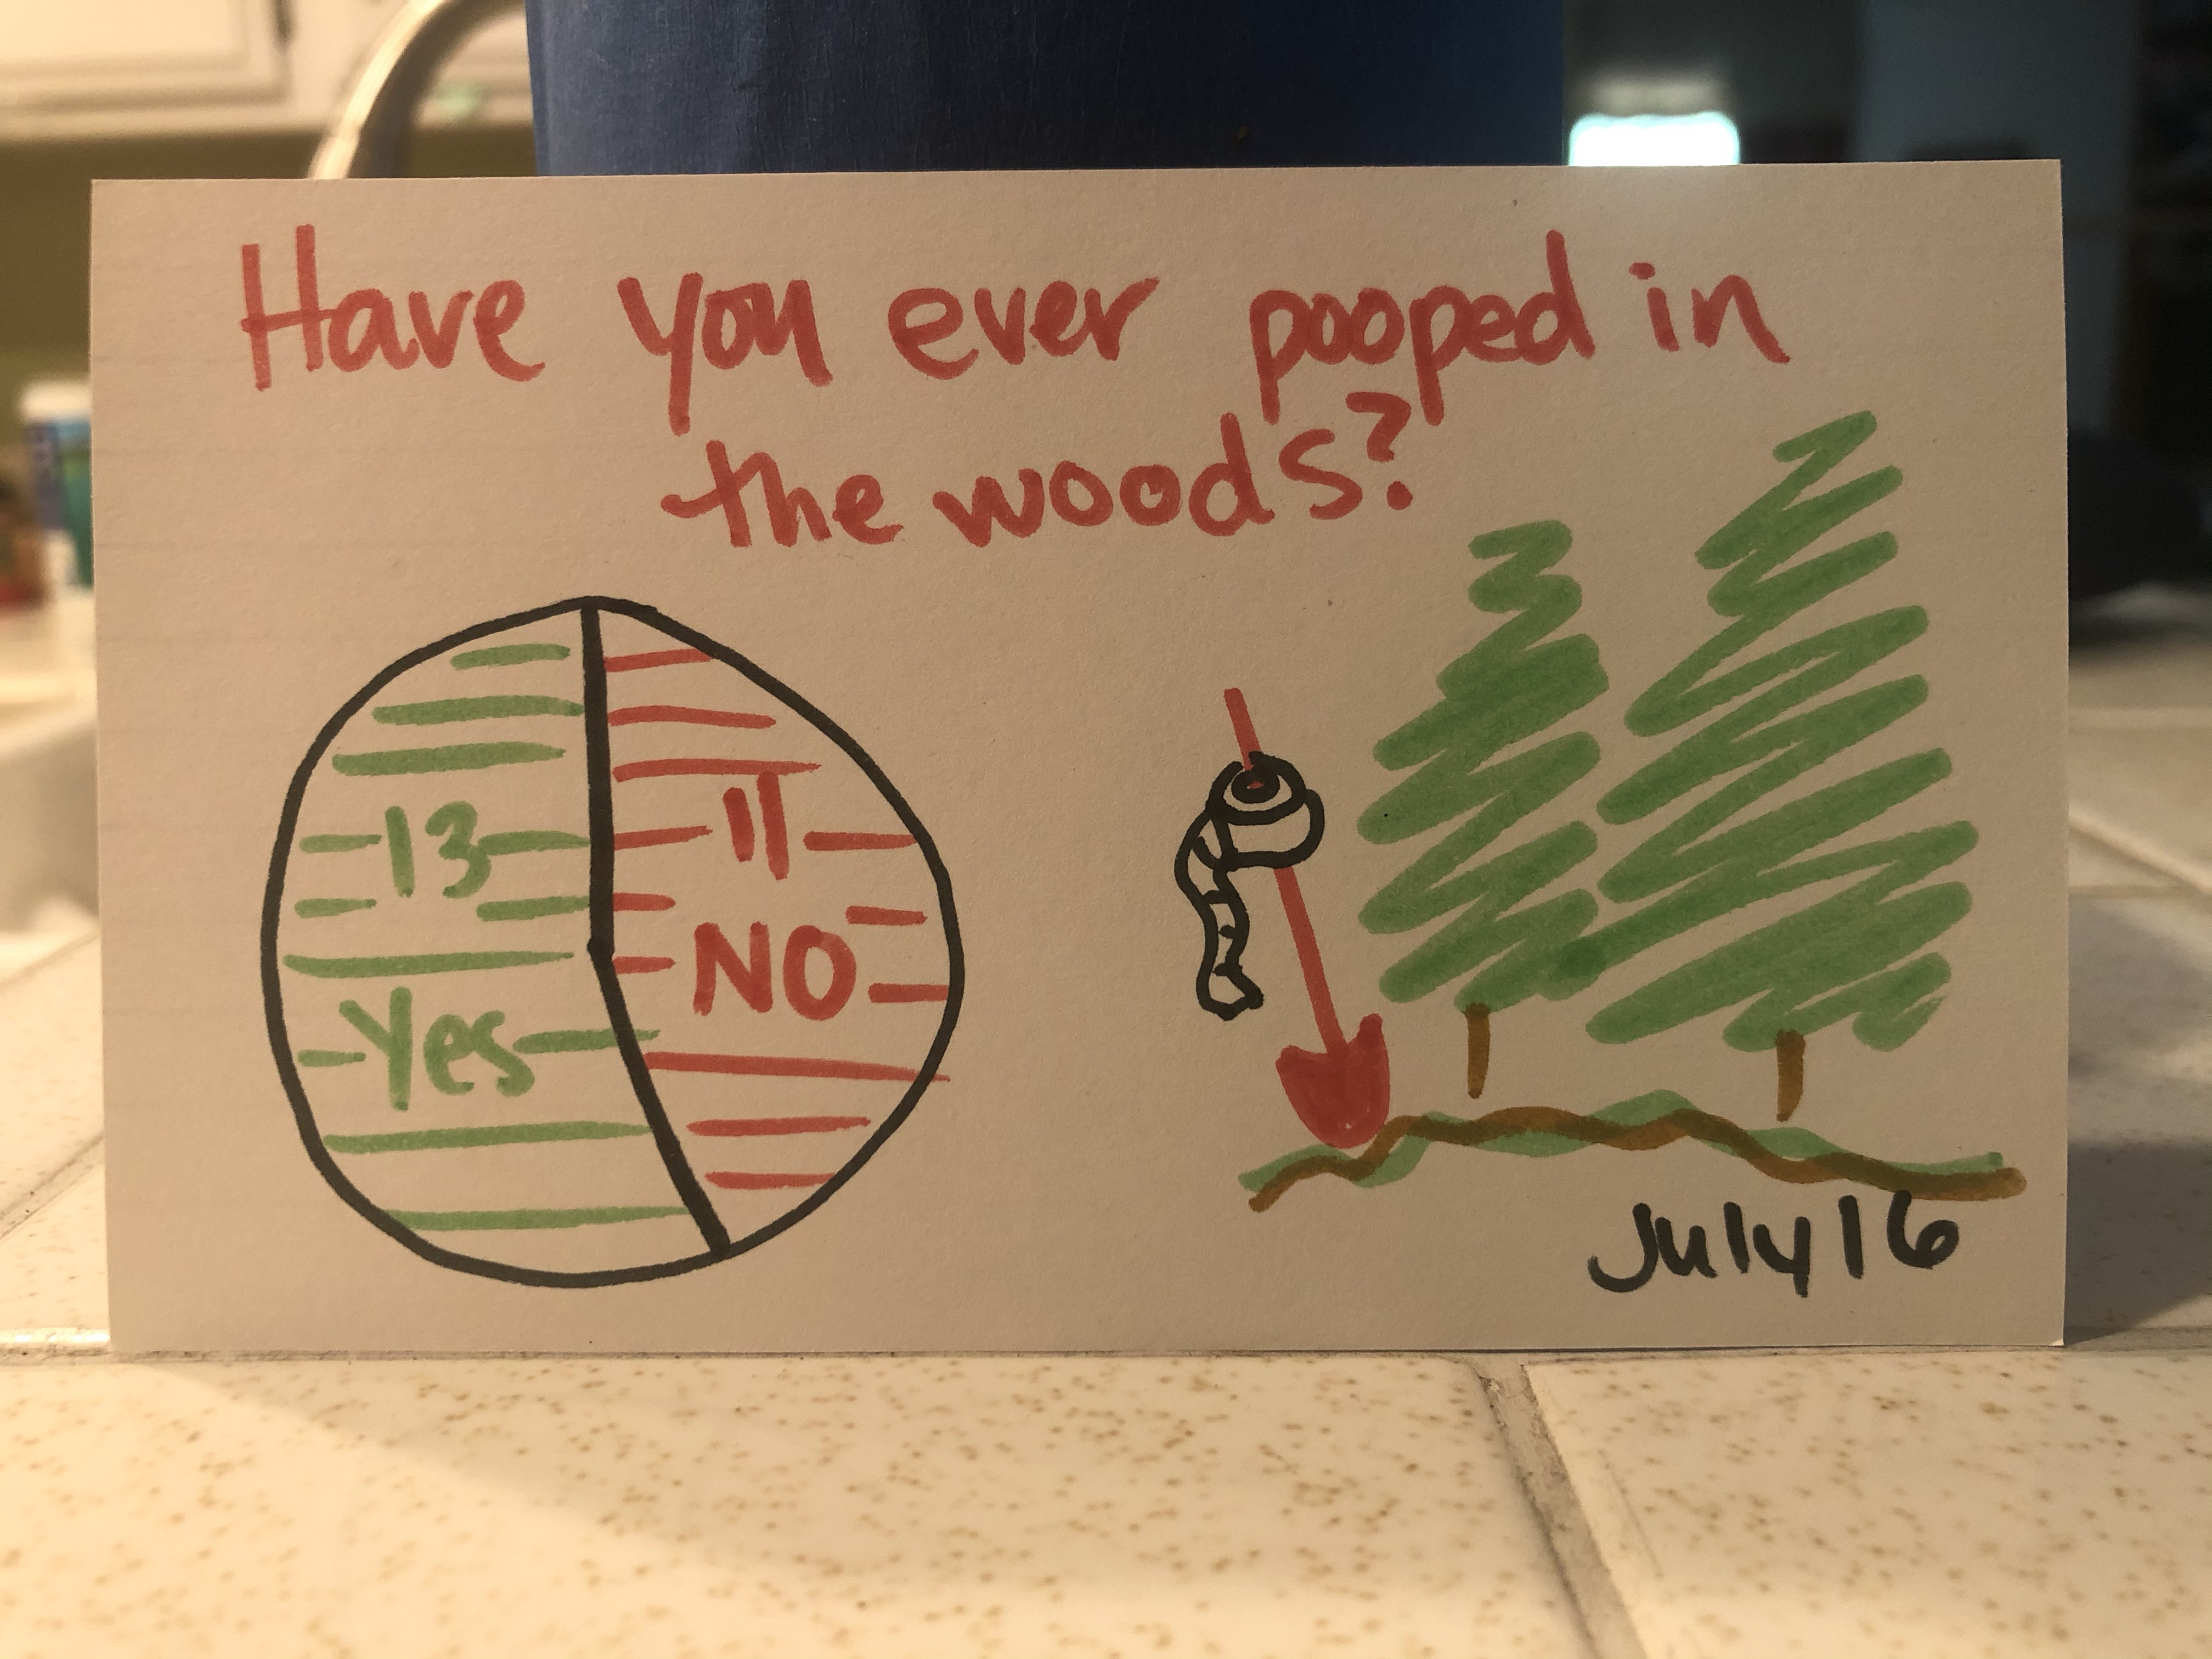 Have you ever pooped in
the woods?
13
Yes
11
NO
July 16